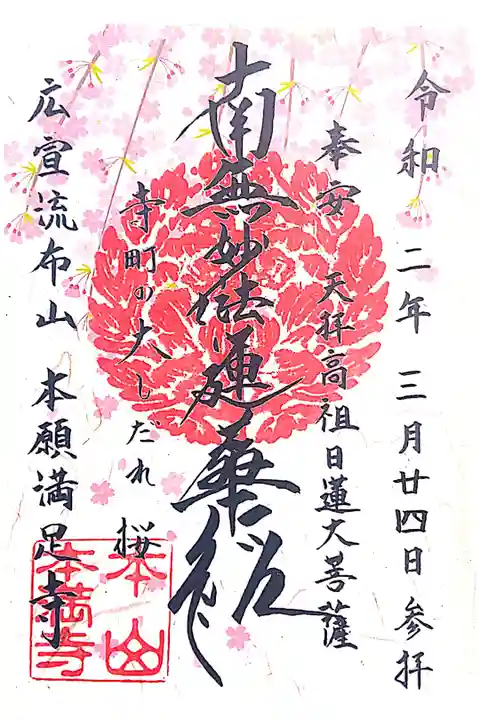 令和二年三月廿四日参拝
奉安 天拝高祖日蓮大菩薩
南無妙法蓮華経
寺町の大しだれ桜
広宣流布山 本願満足寺
本山
本満寺